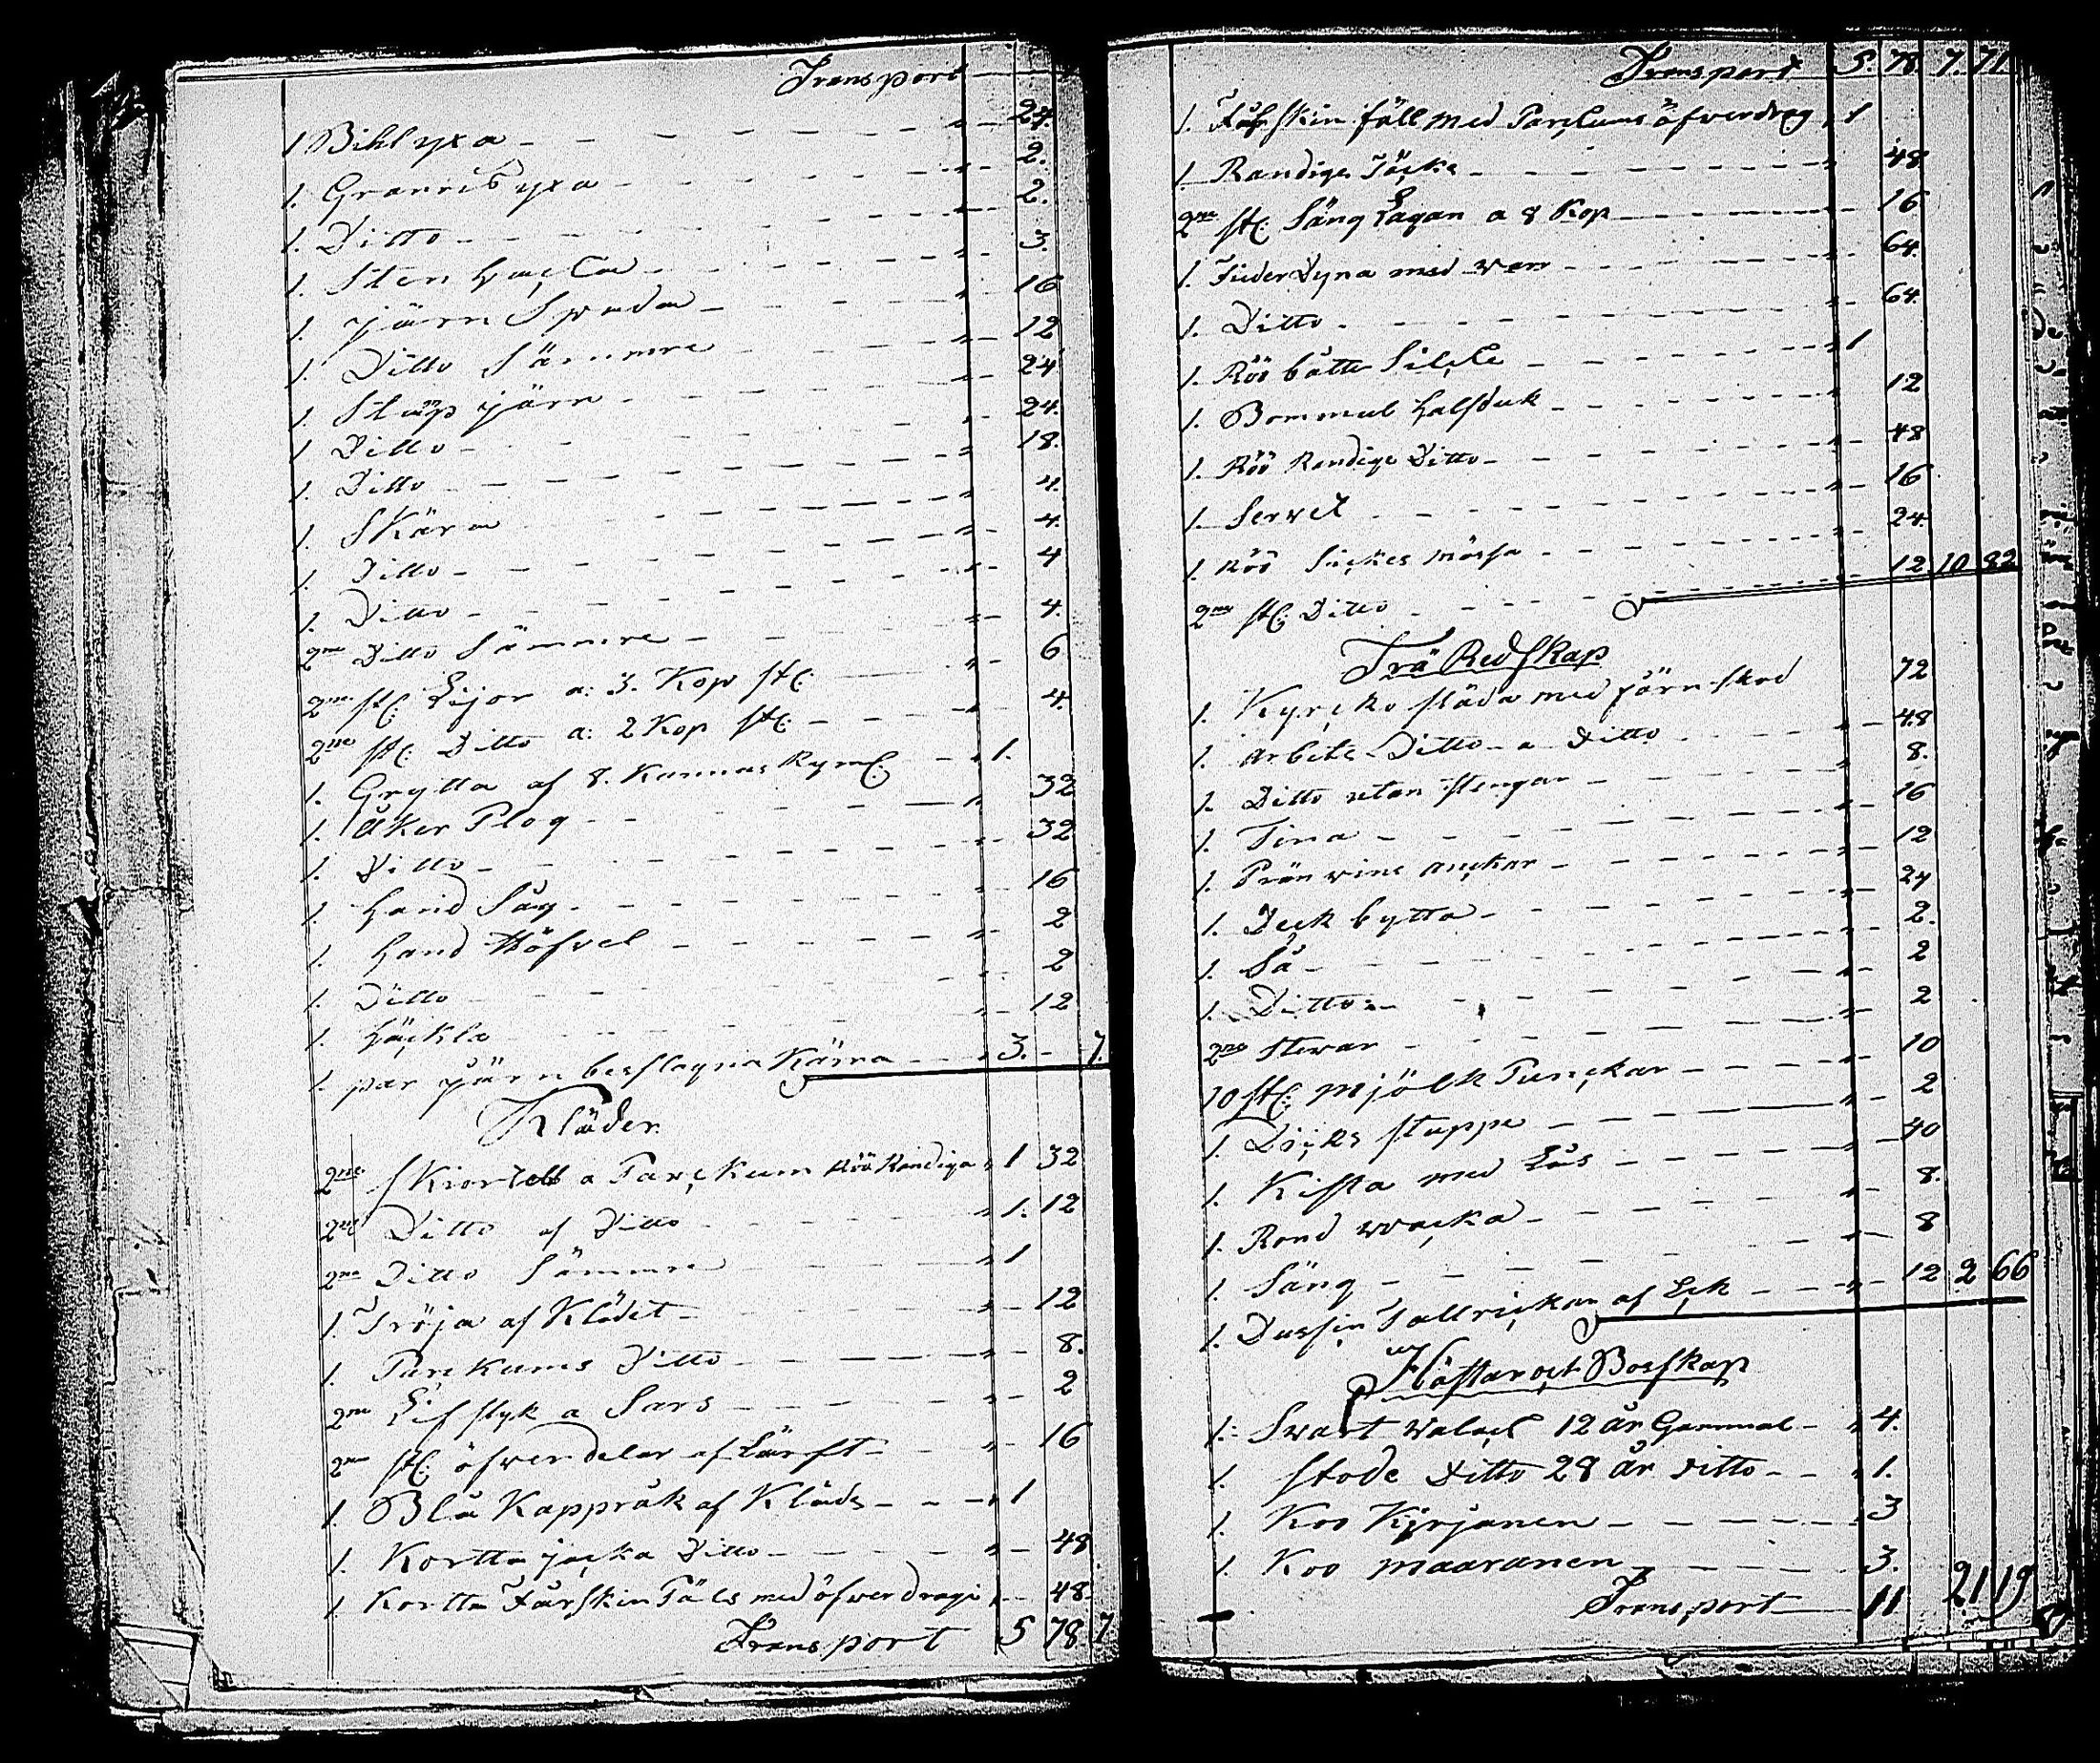 Transport
1 Bihl yxa - - - " - 24.
1. Grannis yxa - - - " - 2.
1. Ditto - - - " - 2.
1. Sten hacka - - - " - 3.
1. järn Spada - - - " - 16
1. Ditto Sämmre - - - " - 12
1. Stäp järn - - - " - 24
1 Ditto - - - " - 24.
1. Ditto - - - " - 18.
1. Skära - - - " - 4.
1. Ditto - - - " - 4.
1. Ditto - - - " - 4
2ne Ditto Sämmre - - - " - 4.
2ne st: Lijor a: 3. Kop st: - - - " - 6
2ne st: Ditto a: 2 Kop st: - - - " - 4.
1. Grytta af 8. Kannas Rym: - " 1.
1. Åker Plog - - - " 32
1. Ditto - - - " - 32
1. hand Såg - - - " - 16
1. hand Höfvel - - - " - 2
1. Ditto - - - " - 2
1. häckla - - - " - 12
1. par järn beslagna Kärra - - - " 3. - 7.
Kläder
2ne Skiortell a Parckum Röö Randiga " 1 32
2ne Ditto af Ditto - - - " 1. 12
2ne Ditto Sämmre - - - " 1
1. Tröja af Klädet - - - " - 12
1. Parckums Ditto - - - " - 8.
2ne Lifstyk a Sars - - - " - 2
2ne st: öfverdelar af Lärft - - " - 16
1. Blå Kappråk af Kläde - - - " 1
1. Kortta jacka Ditto - - - " - 48
1. Kortta Fårskin Päls med öfverdragi " - 48.
Transport 5 78 7
Transport 5. 78 7. 71
1. Fårskin fäll med Parckums öfwerdrag " 1
1. Randiga Täcke - - - " 48
2ne st: Säng Lagan a 8 Kop - - - " - 16
1. Fieder Dyna med war - - - " 64.
1. Ditto - - - " - 64.
1. Röö båtte Silcke - - - " 1
1. Bommul halsduk - - - 12
1. Röö Randige Ditto - - - " - 48
1. Servet - - - " - 16
1. Röö Sickes mössa - - - " - 24
2ne st: Ditto - - - " - 12 10 82
Trä Redskap
1. Kyrcko släda med järn skod 72
1. Arbets Ditto a Ditto - - - " - 48
1. Ditto utan stengar - - - " 8.
1. Tina - - - " - 16
1. Prän wins anckar - - - " - 12
1. Deck bytta - - - " - 24
1. Så - - - 2.
1. Ditto - - - " - 2
2ne stewar - - - " - 2
10 st: mjölk Punckar - - - " - 10
1. stuppe - - - " - 2
1. Kista med Lås - - - " - 40
1. Rond wacka - - - " - 8.
1. Säng - - - " - 8
1. Dussin Tallrickar af - - " - 12 2 66
Hästar och Boskap
1. Svart Valack 12 år Gammal - " 4.
1. stode Ditto 28 år ditto - - " 1.
1. Koo Kirjanen - - - " 3
1. Koo maaranen - - - 3.
Transport 11 21 19